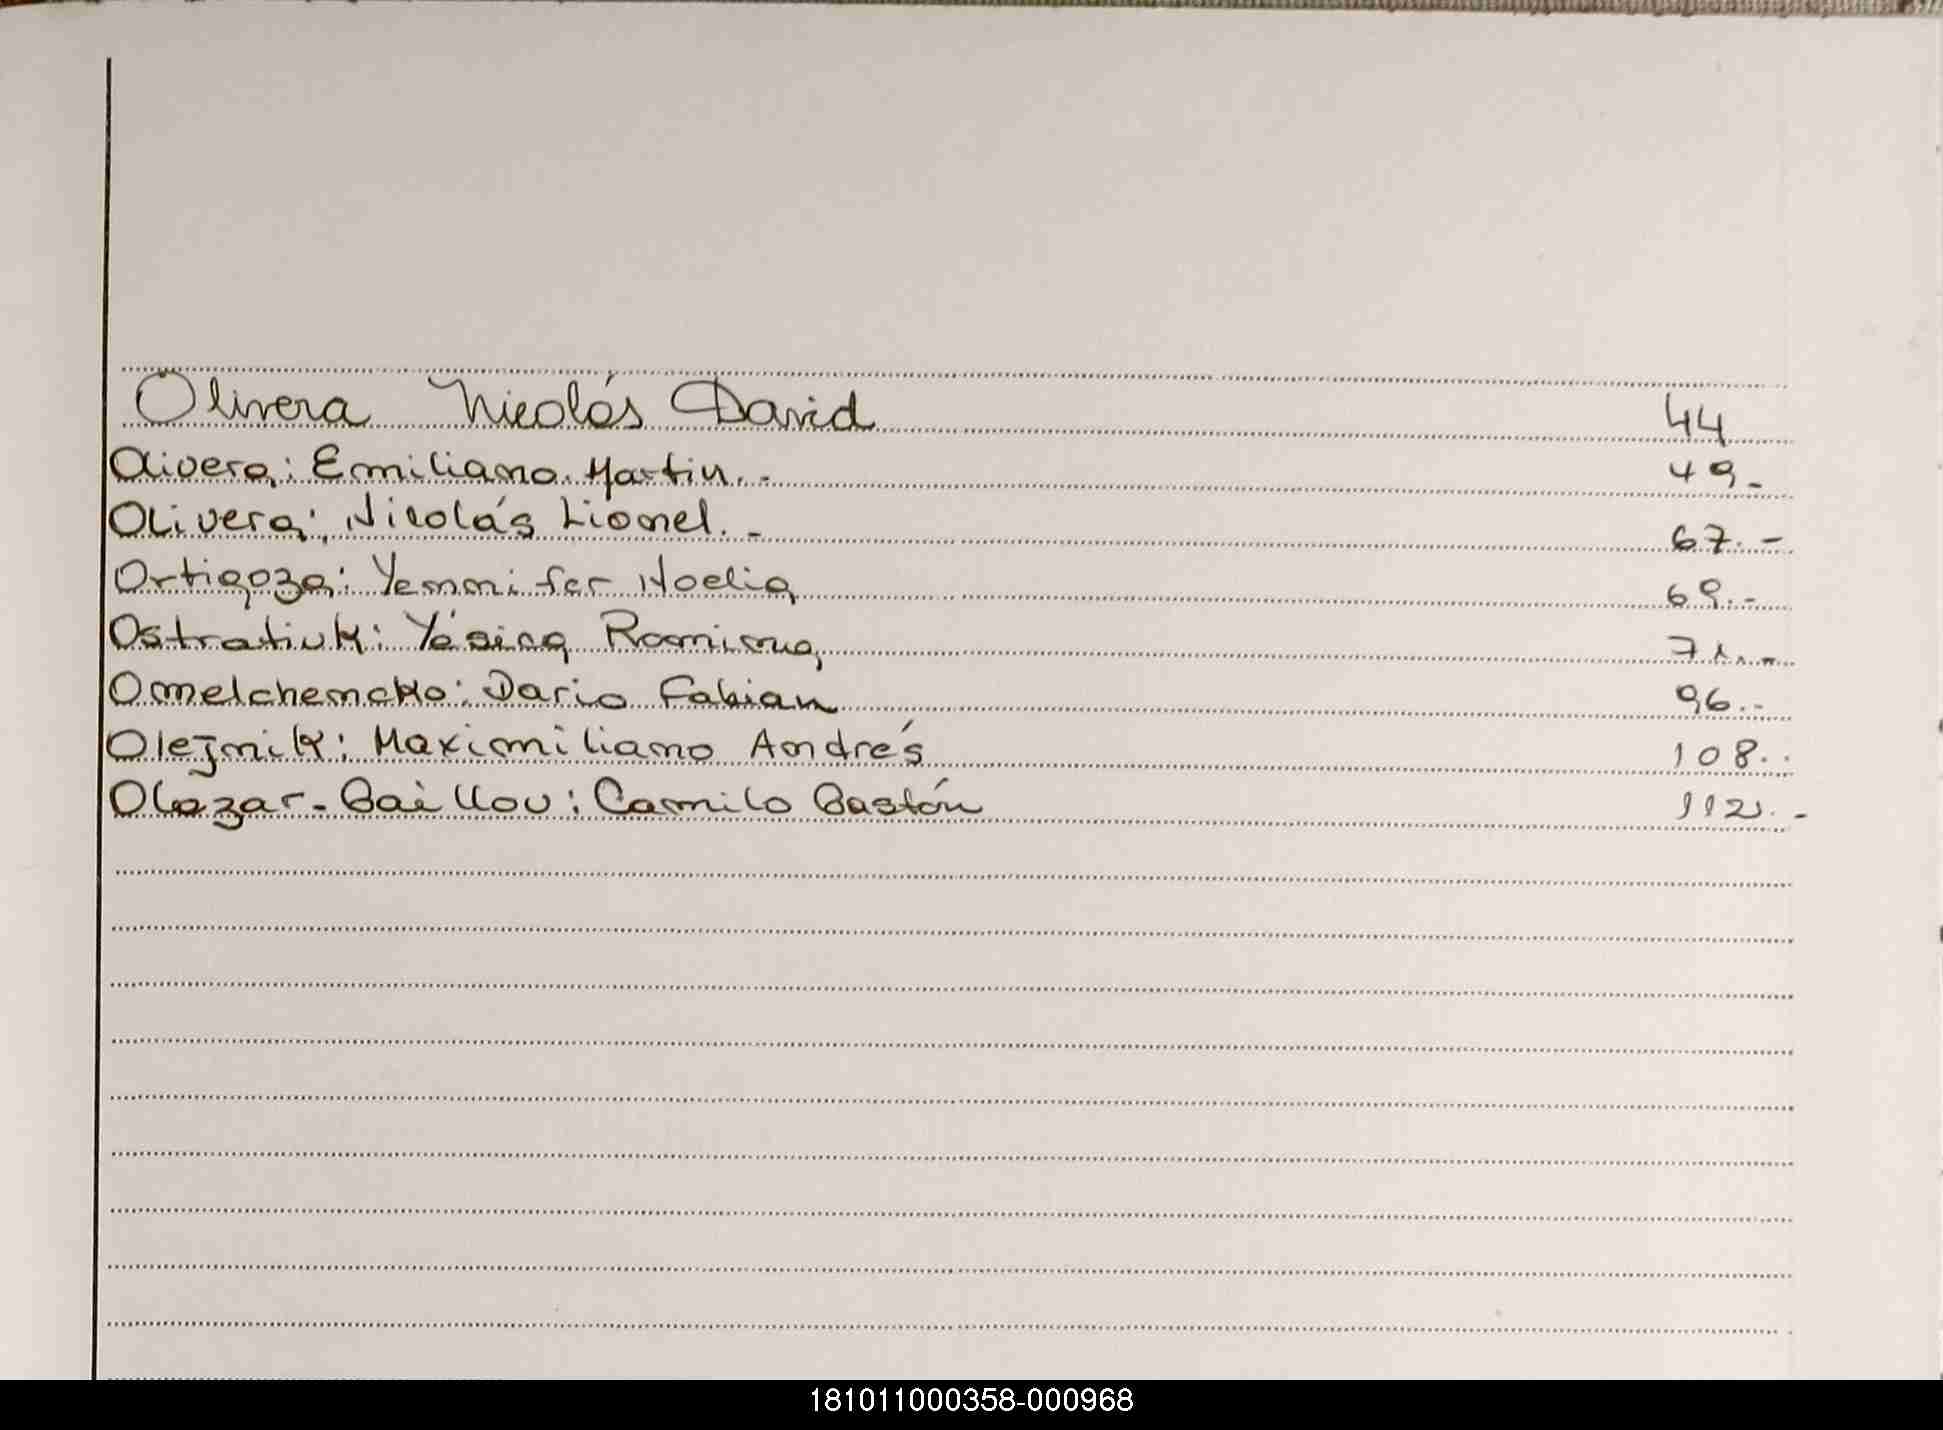 Olivera Nicolás David 44
Olivera: Emiliano Martin.- 49.-
Olivera: Nicolás Lionel.- 67.-
Ortigoza: Yennifer Noelia 69.-
Ostratiuk: Yésica Romina, 71.-
Omelchencko: Dario Fabian 96.-
Olejnik: Maximiliano Andrés 108.-
Olazar-Baillou: Camilo Gastón 112.-
181011000358-000968